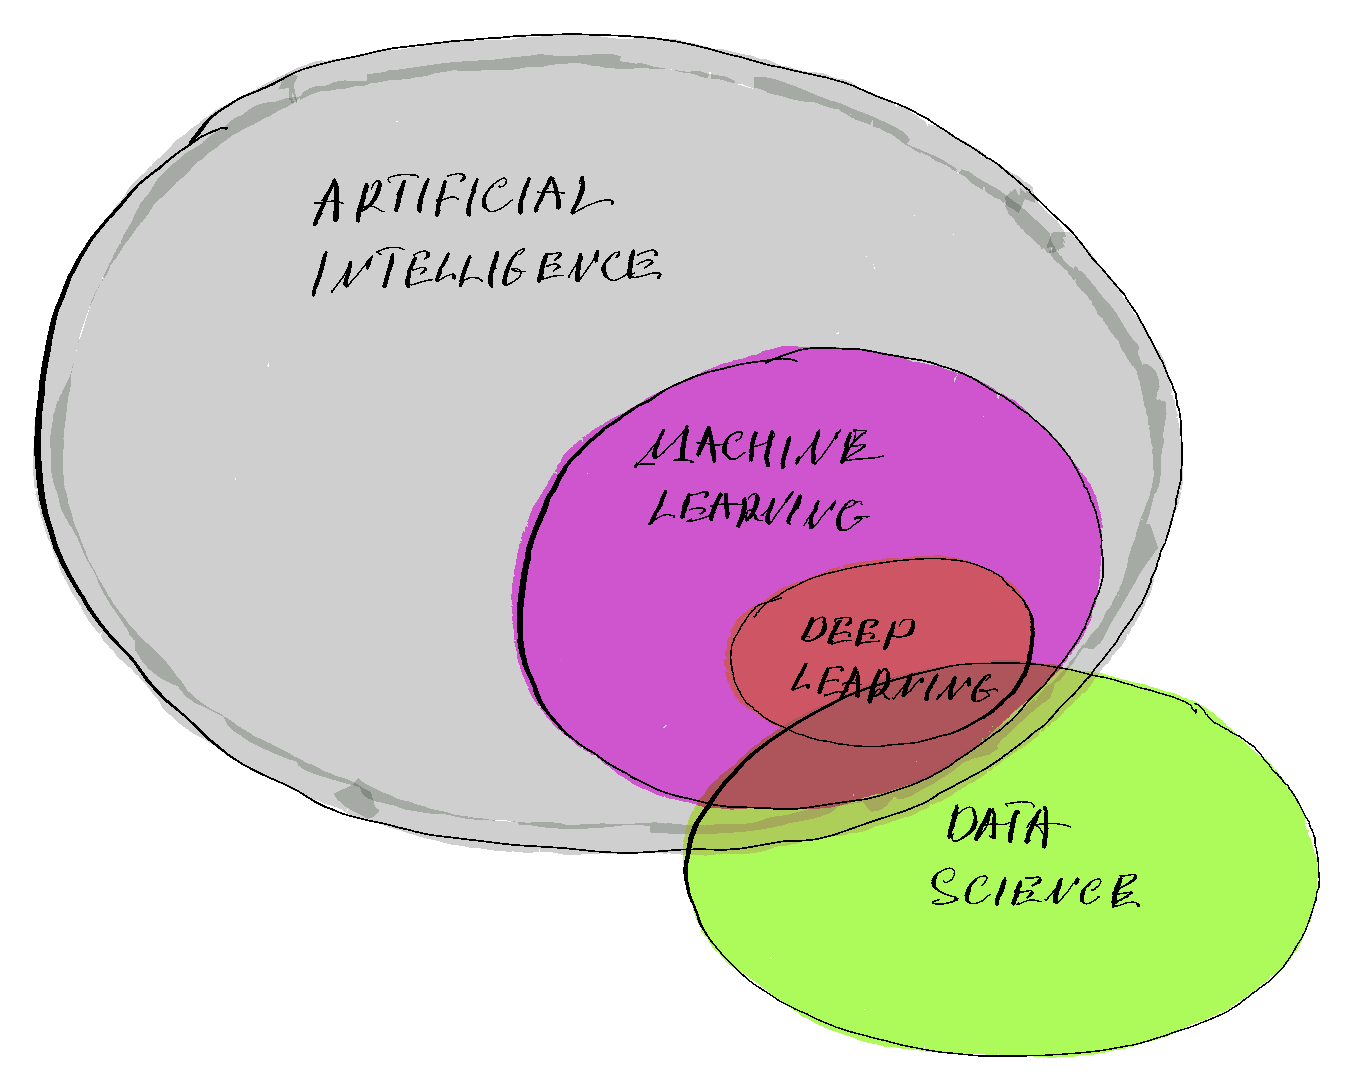 ARTIFICIAL
INTELLIGENCE
MACHINE
LEARNING
DEEP
LEARNING
DATA
SCIENCE